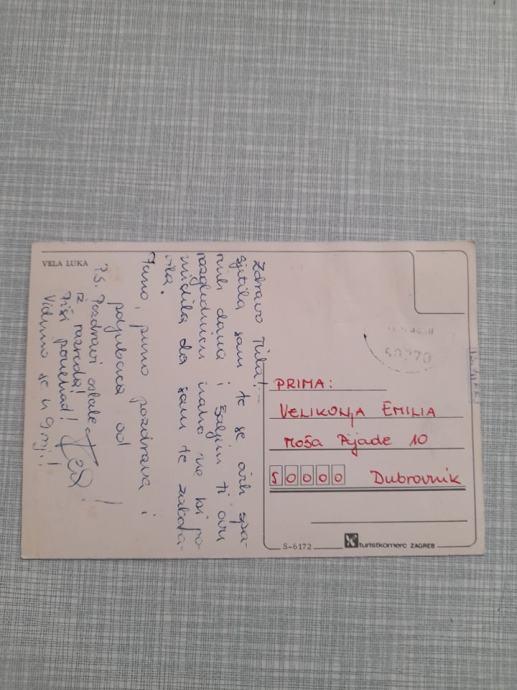 VELA LUKA
Zdravo Tinka!
Sjetila sam te se ovih spa-
rnih dana i šaljem ti ovu
razglednicu kako ne bi po-
mislila da sam te zabora-
vila.
Puno, puno pozdrava i
poljubaca od
P.S. Pozdravi ostale
iz razreda!
Piši ponekad!
Vidimo se u 9. mj.!
50270
PRIMA:
VELIKONJA EMILIA
Moša Pijade 10
50000 Dubrovnik
S-6172 turistkomerc ZAGREB